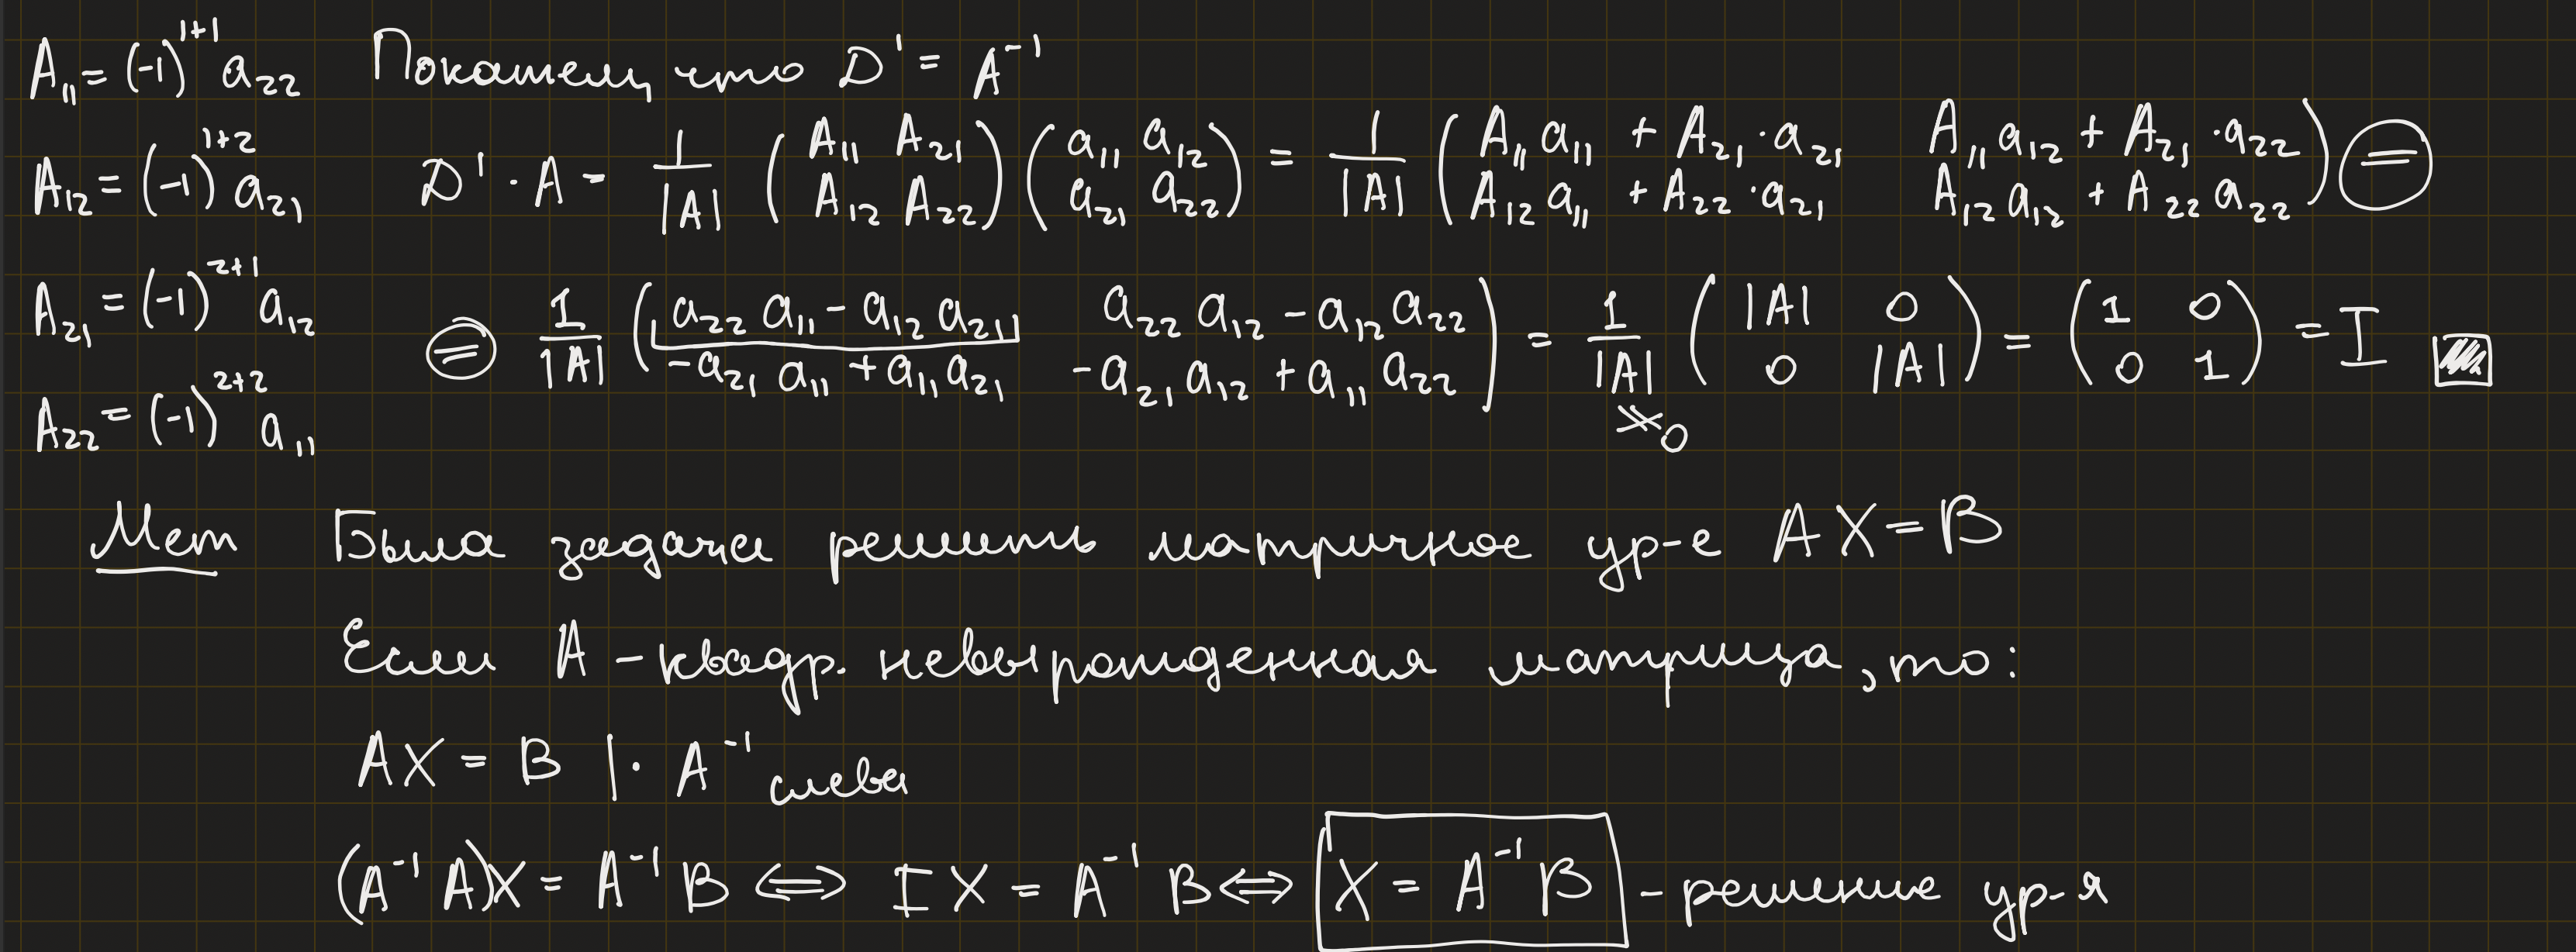 A₁₁ = (-1)¹⁺¹ a₂₂ Покажем, что D' = A⁻¹
A₁₂ = (-1)¹⁺² a₂₁ D' · A = 1/|A| (A₁₁ A₂₁; A₁₂ A₂₂)(a₁₁ a₁₂; a₂₁ a₂₂) = 1/|A| (A₁₁a₁₁ + A₂₁·a₂₁ A₁₁a₁₂ + A₂₁·a₂₂; A₁₂a₁₁ + A₂₂·a₂₁ A₁₂a₁₂ + A₂₂a₂₂) =
A₂₁ = (-1)²⁺¹ a₁₂ = 1/|A| (a₂₂a₁₁ - a₁₂a₂₁ a₂₂a₁₂ - a₁₂a₂₂; -a₂₁a₁₁ + a₁₁a₂₁ -a₂₁a₁₂ + a₁₁a₂₂) = 1/|A| (|A| 0; 0 |A|) = (1 0; 0 1) = I
A₂₂ = (-1)²⁺² a₁₁ ≠0
Мет Была задача решить матричное ур-е AX = B
Если A - квадр. невырожденная матрица, то:
AX = B | · A⁻¹ слева
(A⁻¹ A)X = A⁻¹ B ⟺ IX = A⁻¹ B ⟺ X = A⁻¹ B - решение ур-я